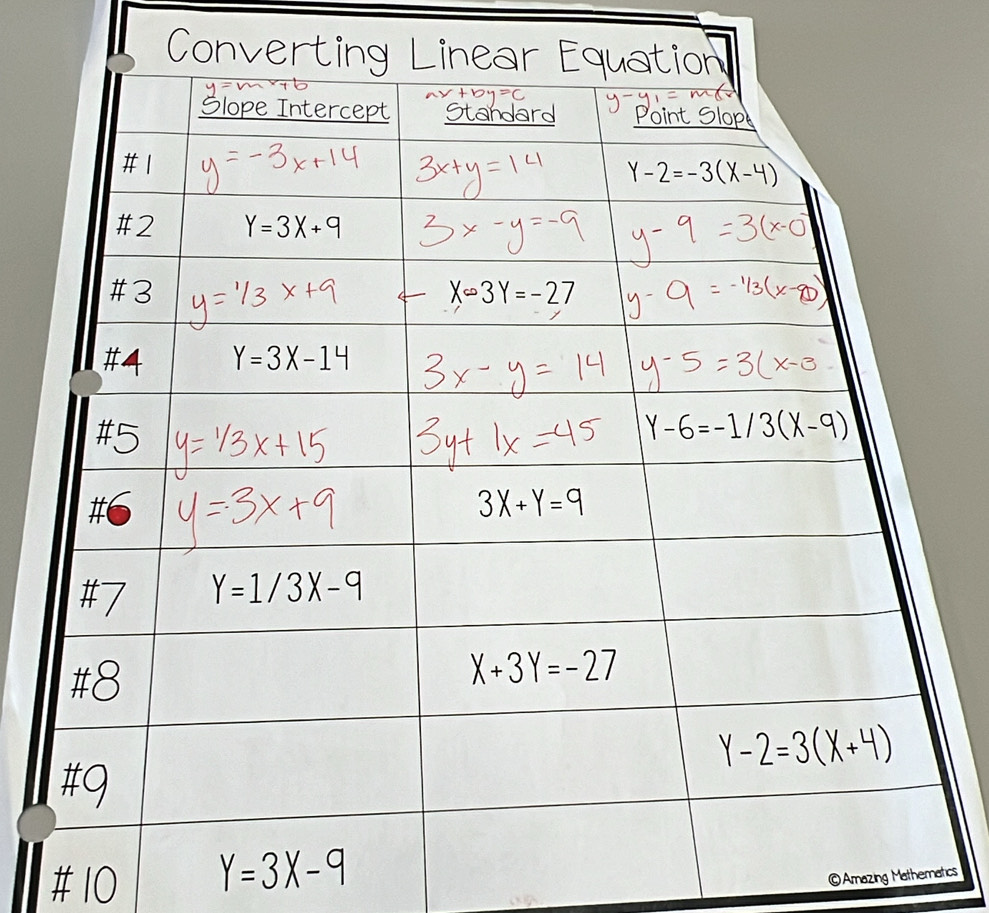 Converting Linear Equation
y=mx+b ax+by=c y-y₁=m(x
Slope Intercept Standard Point Slope
#1 y=-3x+14 3x+y=14 Y-2=-3(X-4)
#2 Y=3X+9 3x-y=-9 y-9=3(x-0
#3 y=1/3 x+9 ← X-3Y=-27 y-9=-1/3(x-0)
#4 Y=3X-14 3x-y=14 y-5=3(x-3
#5 y=1/3x+15 3y+1x=45 Y-6=-1/3(X-9)
#6 y=-3x+9 3X+Y=9
#7 Y=1/3X-9
#8 X+3Y=-27
#9 Y-2=3(X+4)
#10 Y=3X-9
©Amazing Mathematics